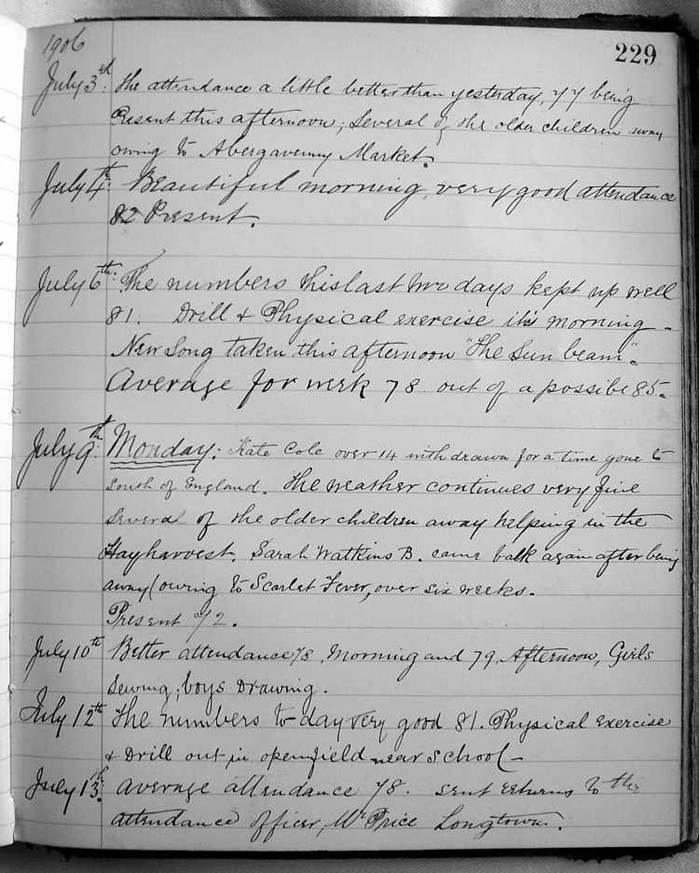 1906
229
July 3rd. The attendance a little better than yesterday, 77 being
Present this afternoon; Several of the older children away
owing to Abergavenny Market.
July 4th. Beautiful morning, very good attendance
82 Present.
July 6th. The numbers this last two days kept up well
81. Drill & Physical exercise this morning -
New Song taken this afternoon "The Sun beam".
Average for week 78 out of a possible 85.
July 9th. Monday: Kate Cole over 14 withdrawn for a time gone to
South of England. The weather continues very fine
Several of the older children away helping in the
Hayharvest. Sarah Watkins B. came back again after being
away (owing to Scarlet Fever, over six weeks.
Present 72.
July 10th Better attendance 78, Morning and 79, Afternoon, Girls
Sewing; boys Drawing.
July 12th The numbers to day very good 81. Physical Exercise
& Drill out in openfield near School -
July 13th. Average attendance 78. sent returns to the
attendance officer, Mr Price Longtown.